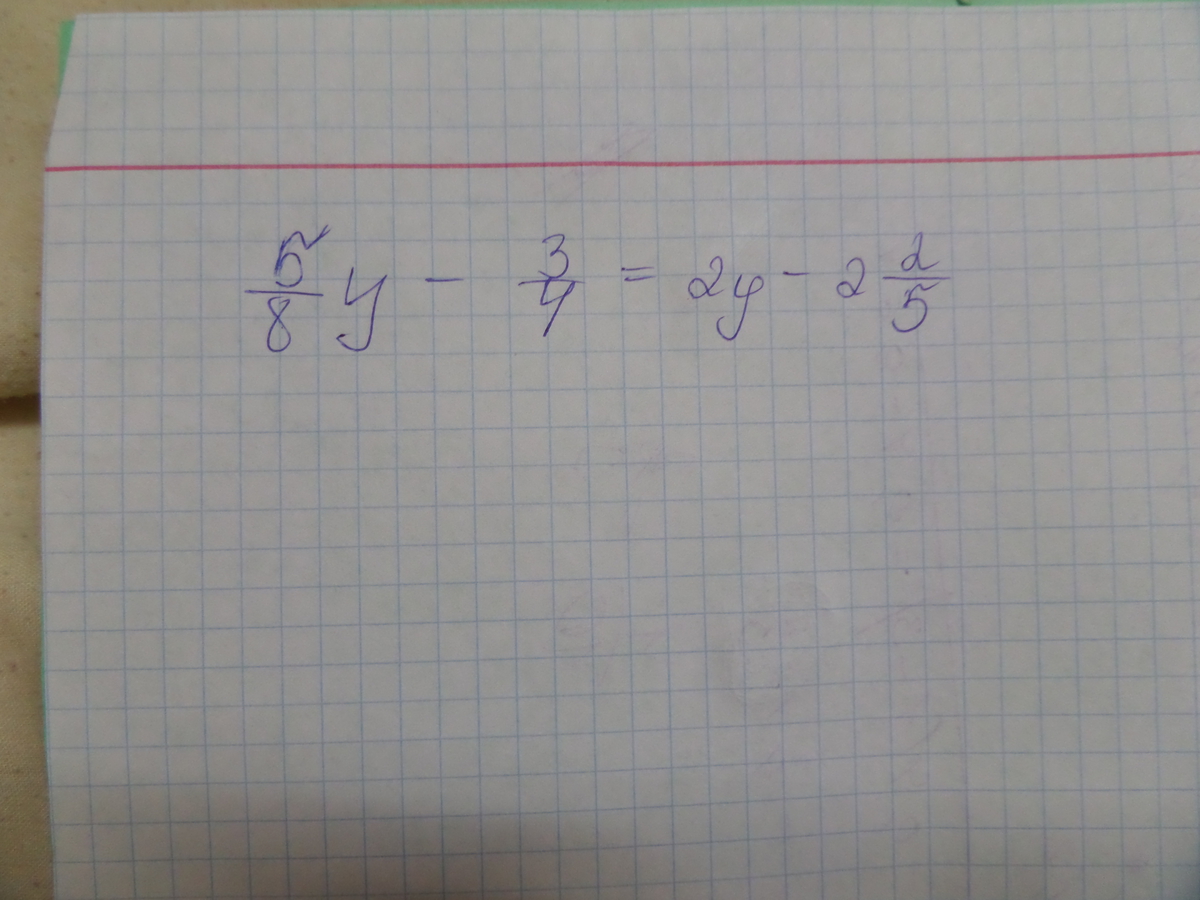 5/8 y - 3/4 = 2y - 2 2/5